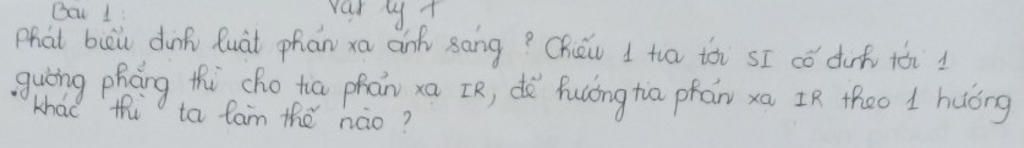 Bài 1:
Vật lý 7
Phát biểu định luật phản xạ ánh sáng ? Chiếu 1 tia tới SI cố định tới 1
gương phẳng thì cho tia phản xạ IR, để hướng tia phản xạ IR theo 1 hướng
khác thì ta làm thế nào ?